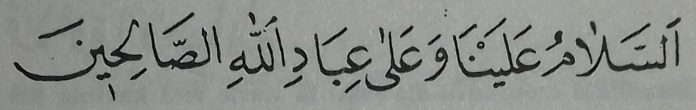 اَلسَّلَامُ عَلَيْنَا وَعَلٰى عِبَادِ اللّٰهِ الصَّالِحِينَ